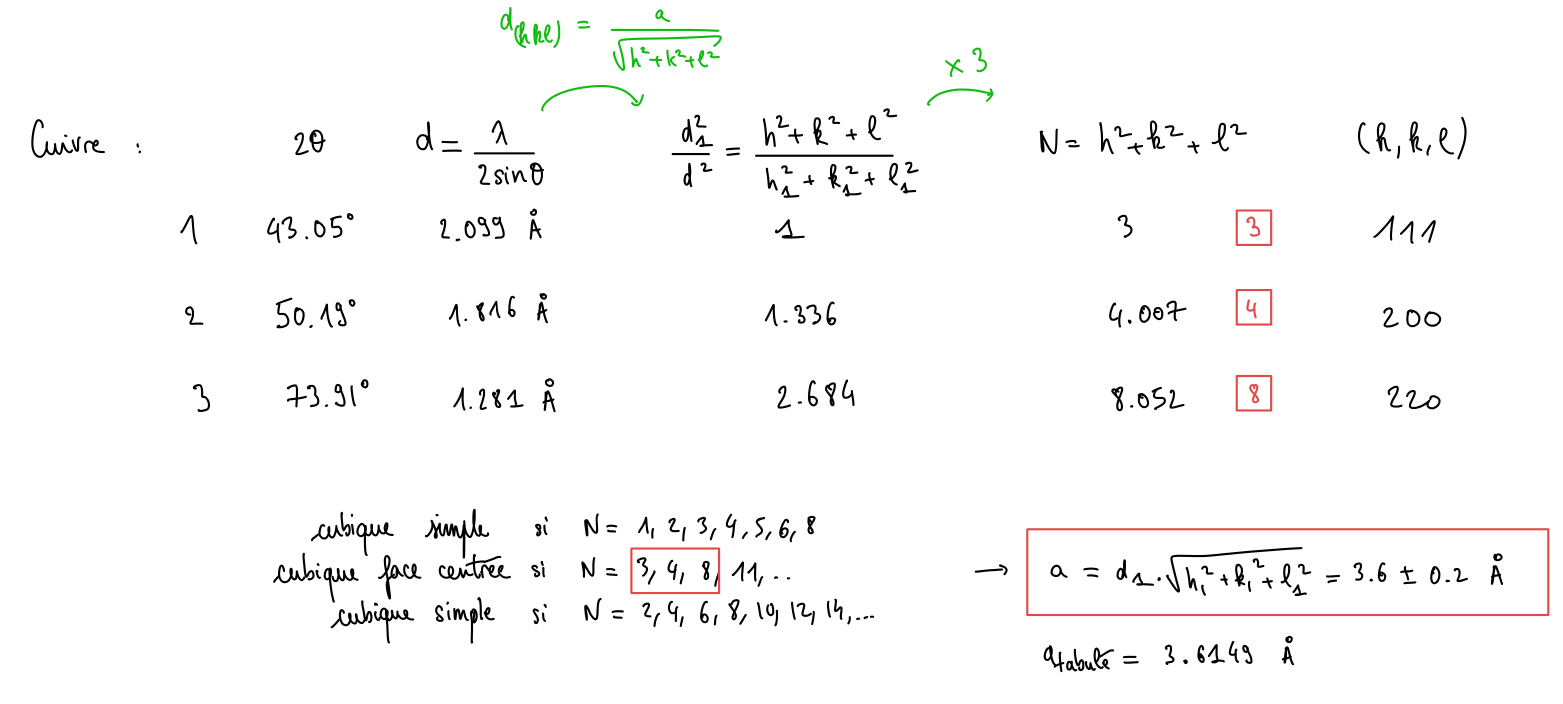 d(hkl) = a / √(h²+k²+l²)
× 3
Cuivre : 2θ d = λ / 2sinθ d₁² / d² = h²+k²+l² / h₁²+k₁²+l₁² N = h²+k²+l² (h,k,l)
1 43.05° 2.099 Å 1 3 3 111
2 50.19° 1.816 Å 1.336 4.007 4 200
3 73.91° 1.281 Å 2.684 8.052 8 220
cubique simple si N = 1, 2, 3, 4, 5, 6, 8
cubique face centrée si N = 3, 4, 8, 11, ..
cubique simple si N = 2, 4, 6, 8, 10, 12, 14, ...
→ a = d₁·√(h₁²+k₁²+l₁²) = 3.6 ± 0.2 Å
a tabulé = 3.6149 Å